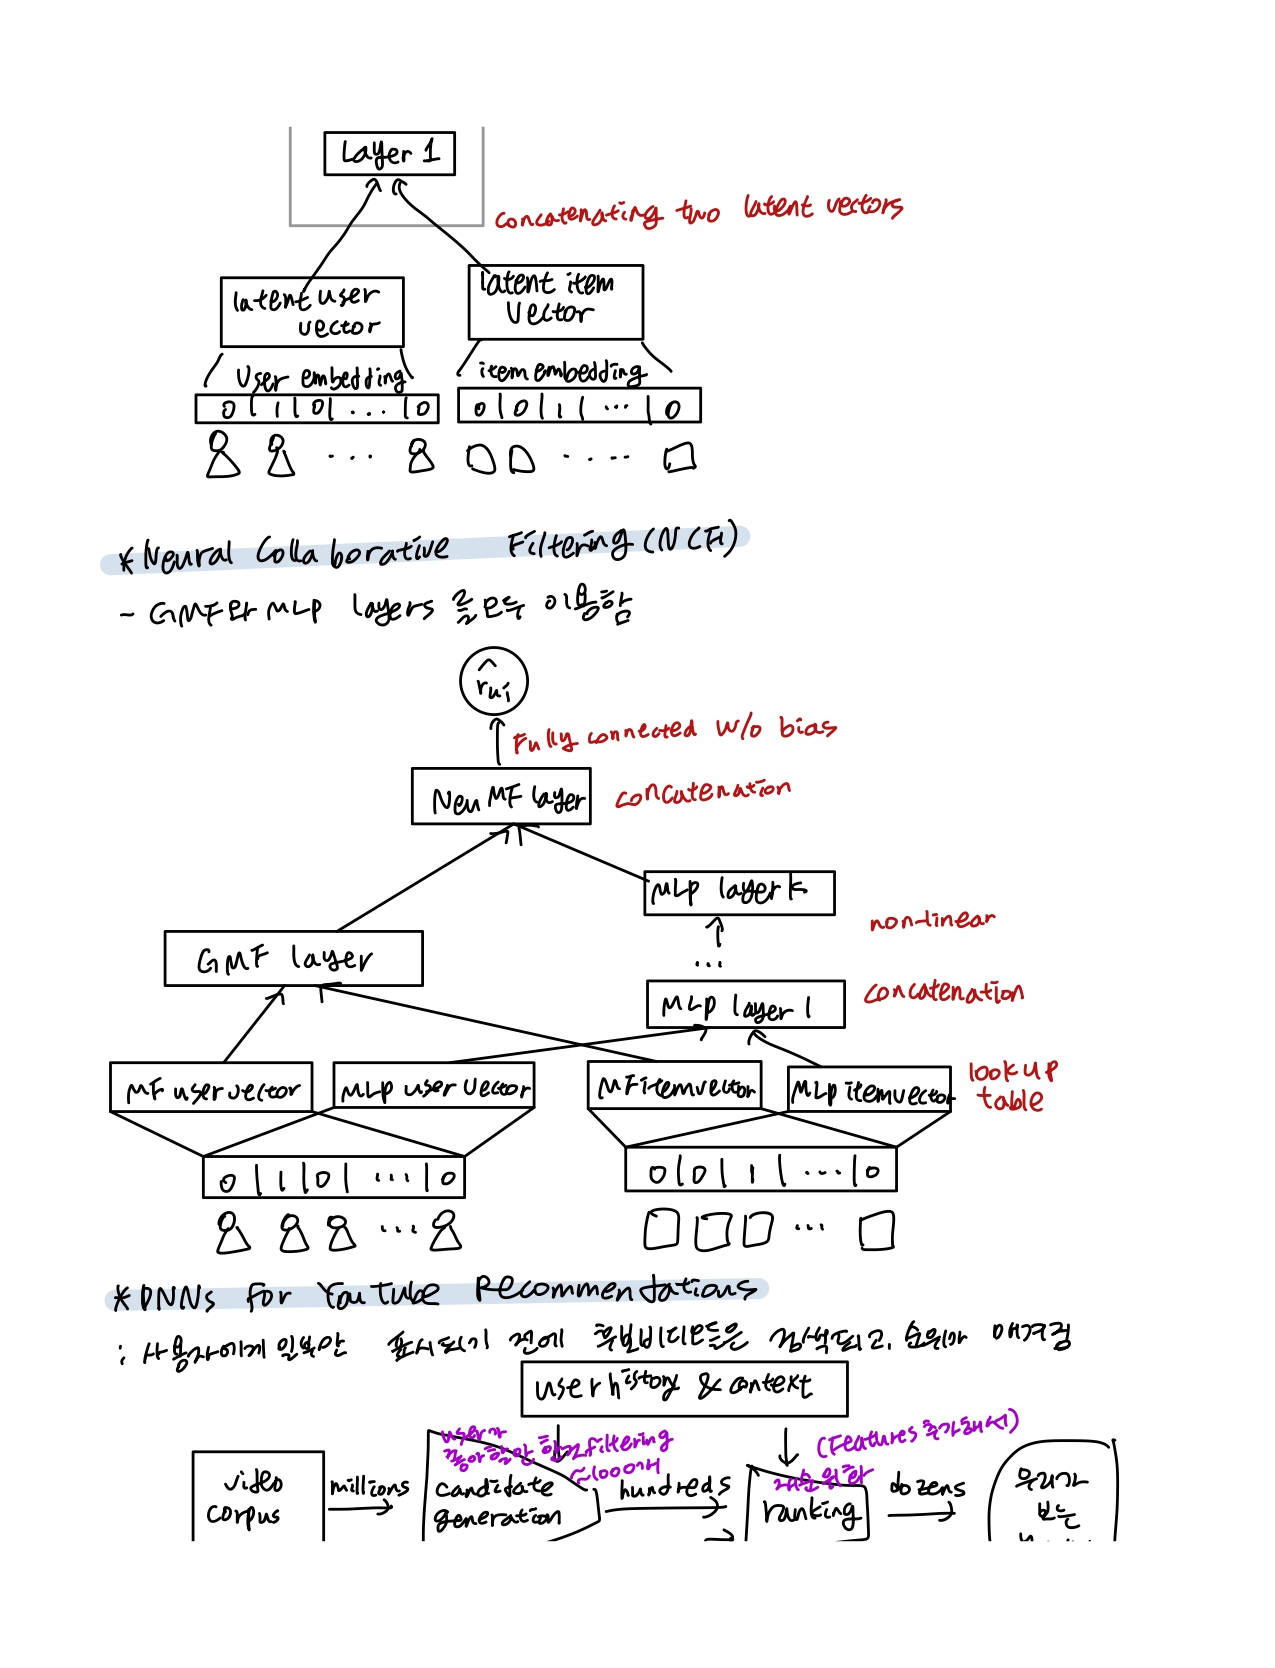 Layer 1
concatenating two latent vectors
latent user
vector
latent item
Vector
User embedding
item embedding
0 | 1 | 0 | ... | 0
0 | 0 | 1 | ... | 0
....
.....
*Neural Collaborative Filtering (NCF)
- GMF와 MLP layers 를 모두 이용함
r̂ui
Fully connected w/o bias
Neu MF layer
concatenation
MLP layer k
non-linear
GMF layer
...
MLP layer 1
concatenation
MF user vector
MLP user Vector
MF item vector
MLP item vector
look up
table
0 | 1 | 0 | ... | 0
0 | 0 | 1 | ... | 0
...
...
*DNNs for YouTube Recommendations
: 사용자에게 일부만 표시되기 전에 후보비디오들은 검색되고, 순위가 매겨짐
user history & context
user가
좋아할만 한 filtering
~1000개
(Features 추가해서)
재순위화
video
corpus
millions
candidate
generation
hundreds
ranking
dozens
우리가
보는